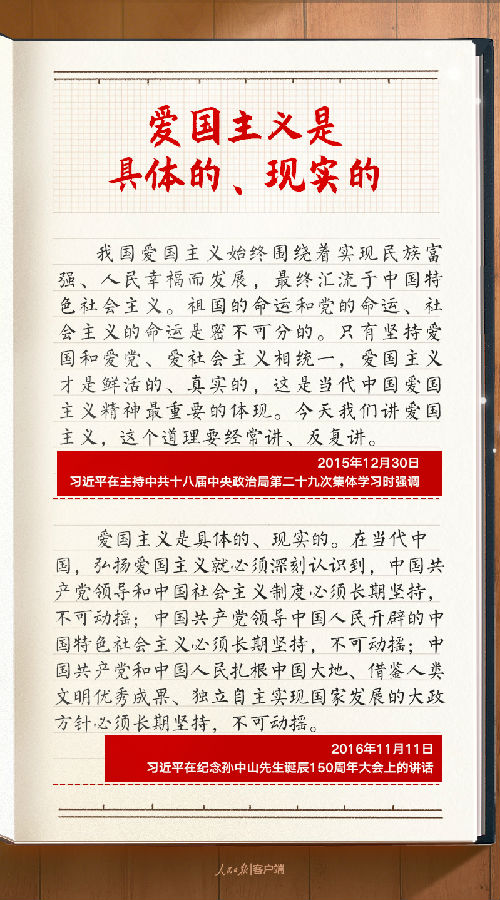 爱国主义是
具体的、现实的
我国爱国主义始终围绕着实现民族富
强、人民幸福而发展，最终汇流于中国特
色社会主义。祖国的命运和党的命运、社
会主义的命运是密不可分的。只有坚持爱
国和爱党、爱社会主义相统一，爱国主义
才是鲜活的、真实的，这是当代中国爱国
主义精神最重要的体现。今天我们讲爱国
主义，这个道理要经常讲、反复讲。
2015年12月30日
习近平在主持中共十八届中央政治局第二十九次集体学习时强调
爱国主义是具体的、现实的。在当代中
国，弘扬爱国主义就必须深刻认识到，中国共
产党领导和中国社会主义制度必须长期坚持，
不可动摇；中国共产党领导中国人民开辟的中
国特色社会主义必须长期坚持，不可动摇；中
国共产党和中国人民扎根中国大地、借鉴人类
文明优秀成果、独立自主实现国家发展的大政
方针必须长期坚持，不可动摇。
2016年11月11日
习近平在纪念孙中山先生诞辰150周年大会上的讲话
人民日报|客户端